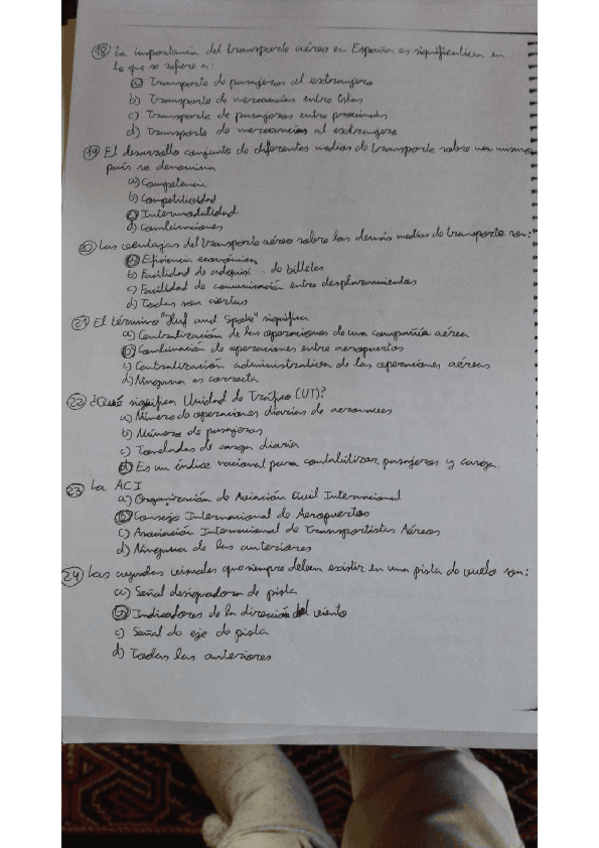 18 La importancia del transporte aéreo en España es significativa en
lo que se refiere a:
a) Transporte de pasajeros al extranjero
b) Transporte de mercancías entre islas
c) Transporte de pasajeros entre provincias
d) Transporte de mercancías al extranjero
19 El desarrollo conjunto de diferentes medios de transporte sobre un mismo
país se denomina
a) Competencia
b) Competitividad
c) Intermodalidad
d) Combinaciones
20 Las ventajas del transporte aéreo sobre los demás medios de transporte son:
a) Eficiencia económica
b) Facilidad de de billetes
c) Facilidad de comunicación entre desplazamientos
d) Todas son ciertas
21 El término "Huf and Spoke" significa
a) Centralización de las operaciones de una compañía aérea
b) Combinación de operaciones entre aeropuertos
c) Centralización administrativa de las operaciones aéreas
d) Ninguna es correcta
22 ¿Qué significa Unidad de Tráfico (UT)?
a) Número de operaciones diarias de aeronaves
b) Número de pasajeros
c) Toneladas de carga diaria
d) Es un índice racional para contabilizar pasajeros y carga.
23 La ACI
a) Organización de Aviación Civil Internacional
b) Consejo Internacional de Aeropuertos
c) Asociación Internacional de Transportistas Aéreos
d) Ninguna de las anteriores
24 Las ayudas visuales que siempre deben existir en una pista de vuelo son:
a) Señal designadora de pista
b) Indicadores de la dirección del viento
c) Señal de eje de pista
d) Todas las anteriores